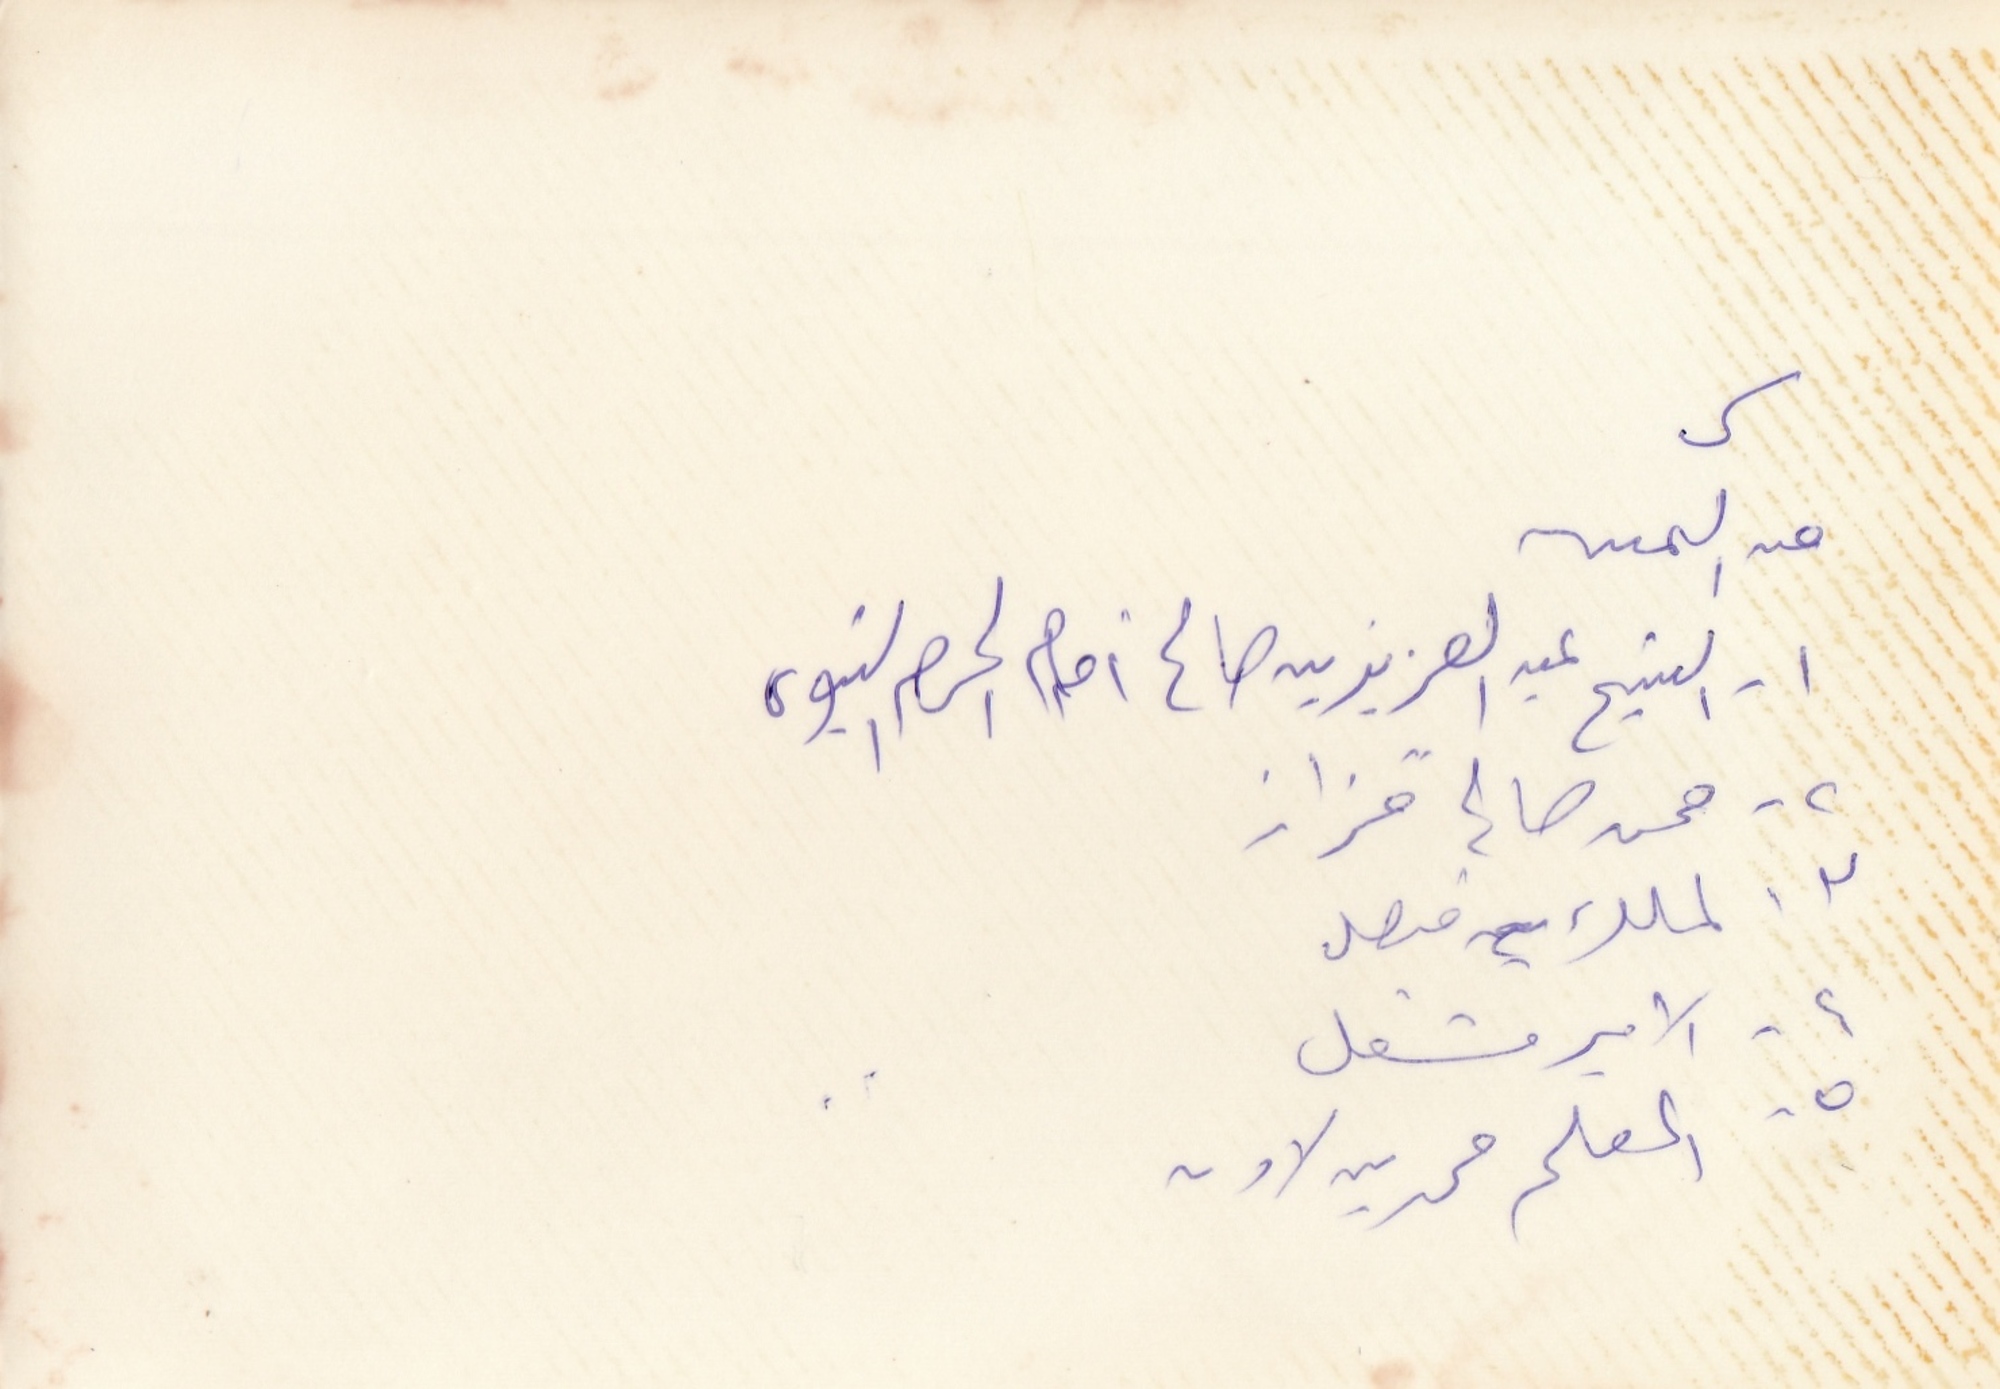 من اليمين
١ - الشيخ عبد العزيز بن صالح امام الحرم النبوي
٢ - محمد صالح قزاز
٣ - الملك فيصل
٤ - الأمير مشعل
٥ - المعلم محمد بن لادن